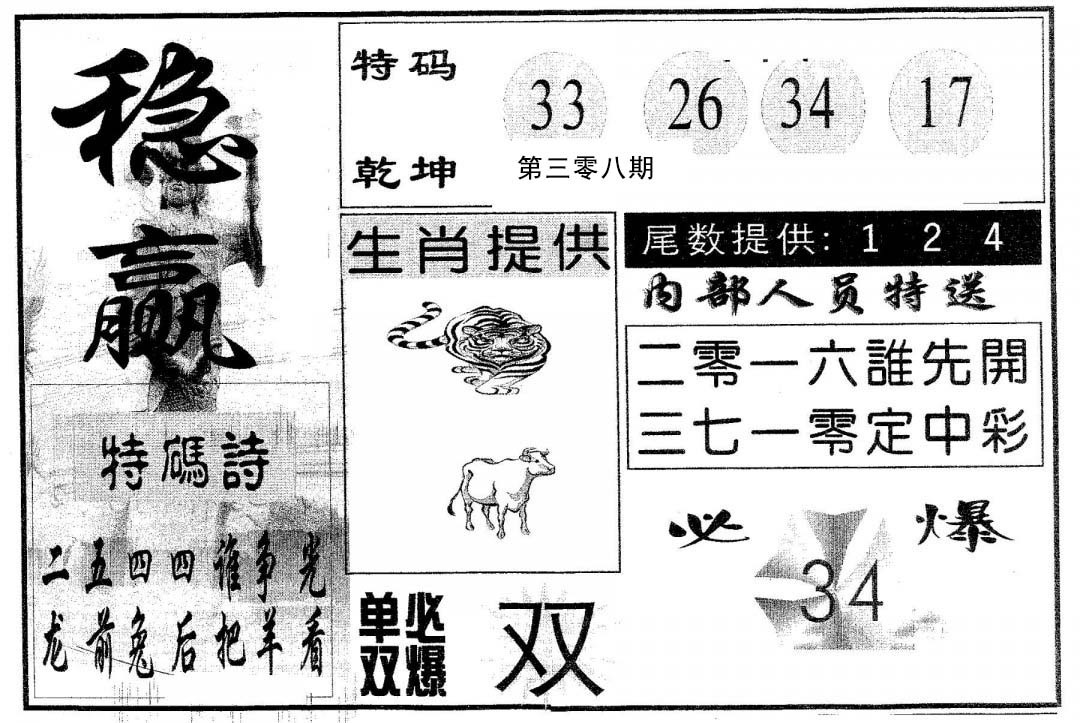 稳赢
特码 33 26 34 17
乾坤 第三零八期
生肖提供
尾数提供: 1 2 4
内部人员特送
二零一六誰先開
三七一零定中彩
特碼詩
二五四四谁争光
龙前兔后把羊看
必爆
34
单双必爆
双